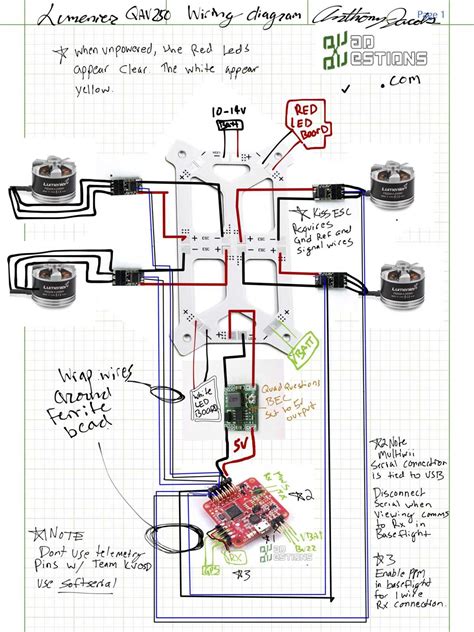 Lumenier QAV250 Wiring diagram
Page 1
QUAD
QUESTIONS
.com
* When unpowered, the Red Leds
appear Clear. The white appear
yellow.
10-14v
BAtt
RED
LED
BOARD
Lumenier
Lumenier
* Kiss ESC
Requires
Gnd Ref and
signal wires
ESC
ESC
ESC
ESC
Lumenier
Lumenier
VBATT
Wrap wires
Around
Ferrite
bead
White
LED
BOARD
QuadQuestions
BEC
Set to 5v
output
5V
*2 Note
Multiwii
Serial connection
is tied to USB
Disconnect
Serial when
Viewing comms
to Rx in
Baseflight
*2
*1 NOTE
Dont Use telemetry
Pins w/ Team KWAD
Use softserial
VBAT
Buzz
QUAD
QUESTIONS
GPS
*3
*3
Enable PPM
in baseflight
for 1 wire
Rx connection.